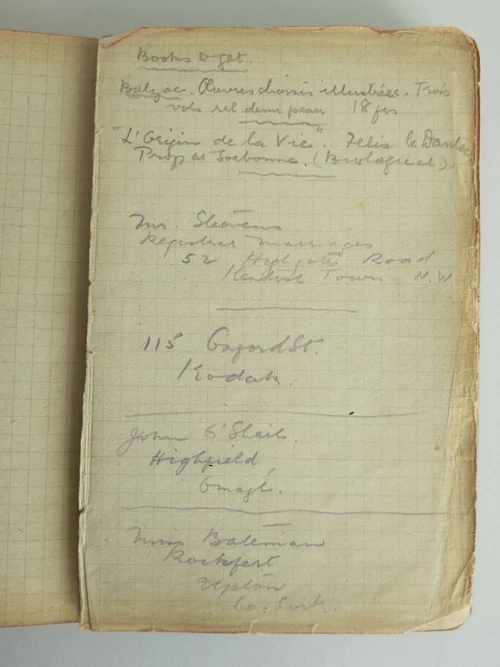 Books to get.
Balzac. Œuvres choisies illustrées. Trois
vols rel demi peau 18 frs
"L'Origin de la Vie". Felix le Dantec
Prof at Sorbonne. (Biological)
Mr. Stevens
Registrar Marriages
52 Highgate Road
Kentish Town N.W
115 Oxford St.
Kodak.
John O'Sheil.
Highfield
Omagh.
Miss Bateman
Rockfort
Upton
Co. Cork.